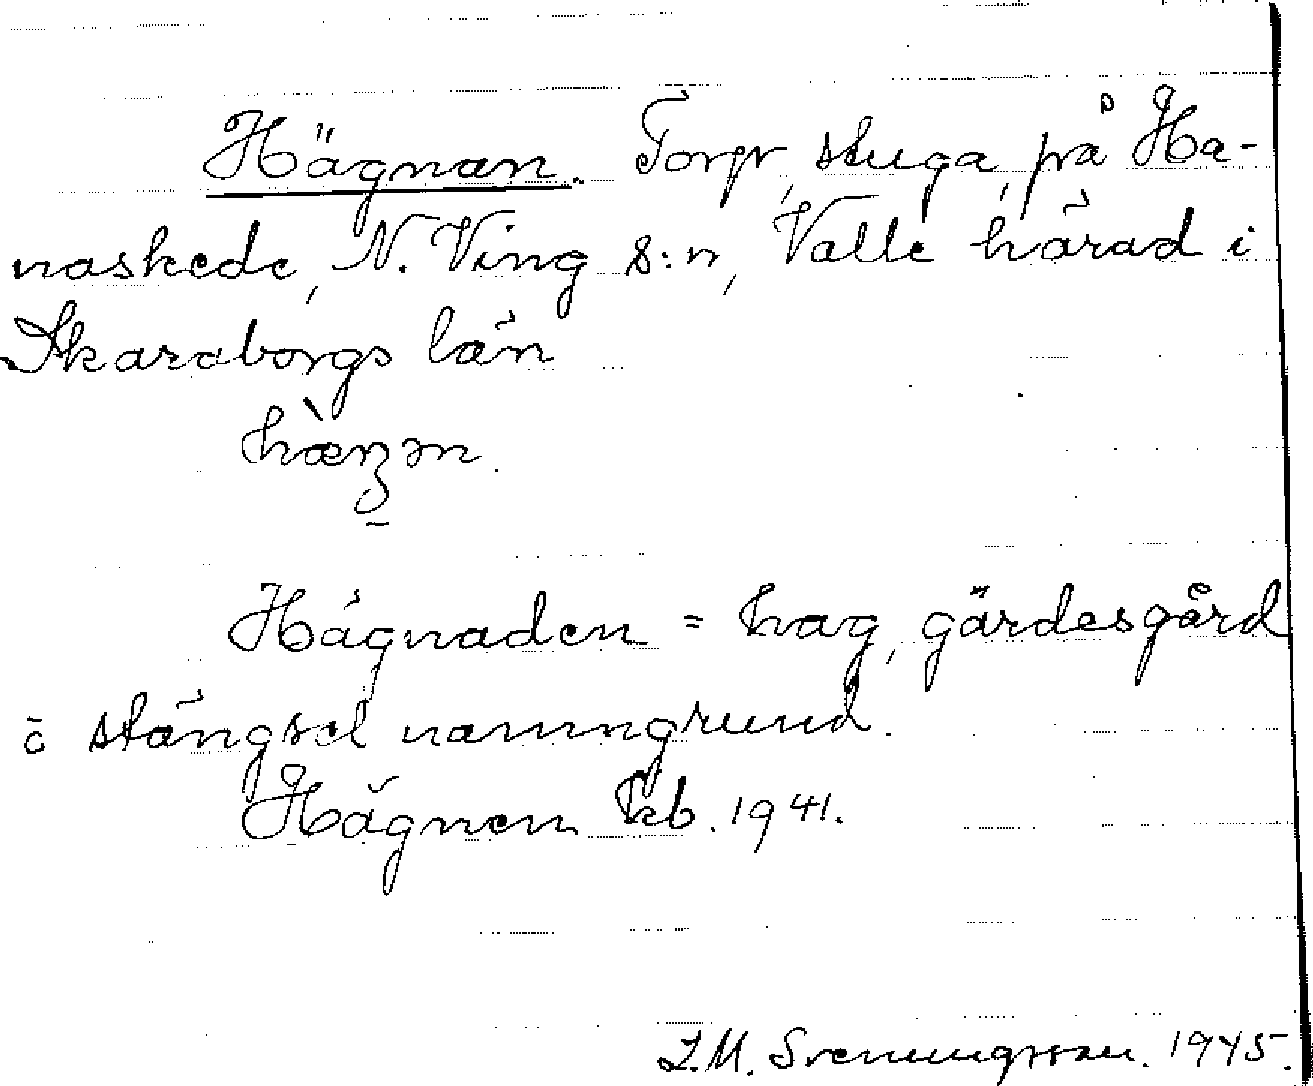 Hägnan. Torp, stuga, på Ha-
naskede, N. Ving s:n, Valle härad i
Skaraborgs län
Hägnaden = hag, gärdesgård
o stängsel namngrund.
Hägnen kb. 1941.
L.M. Svenungsson. 1945.